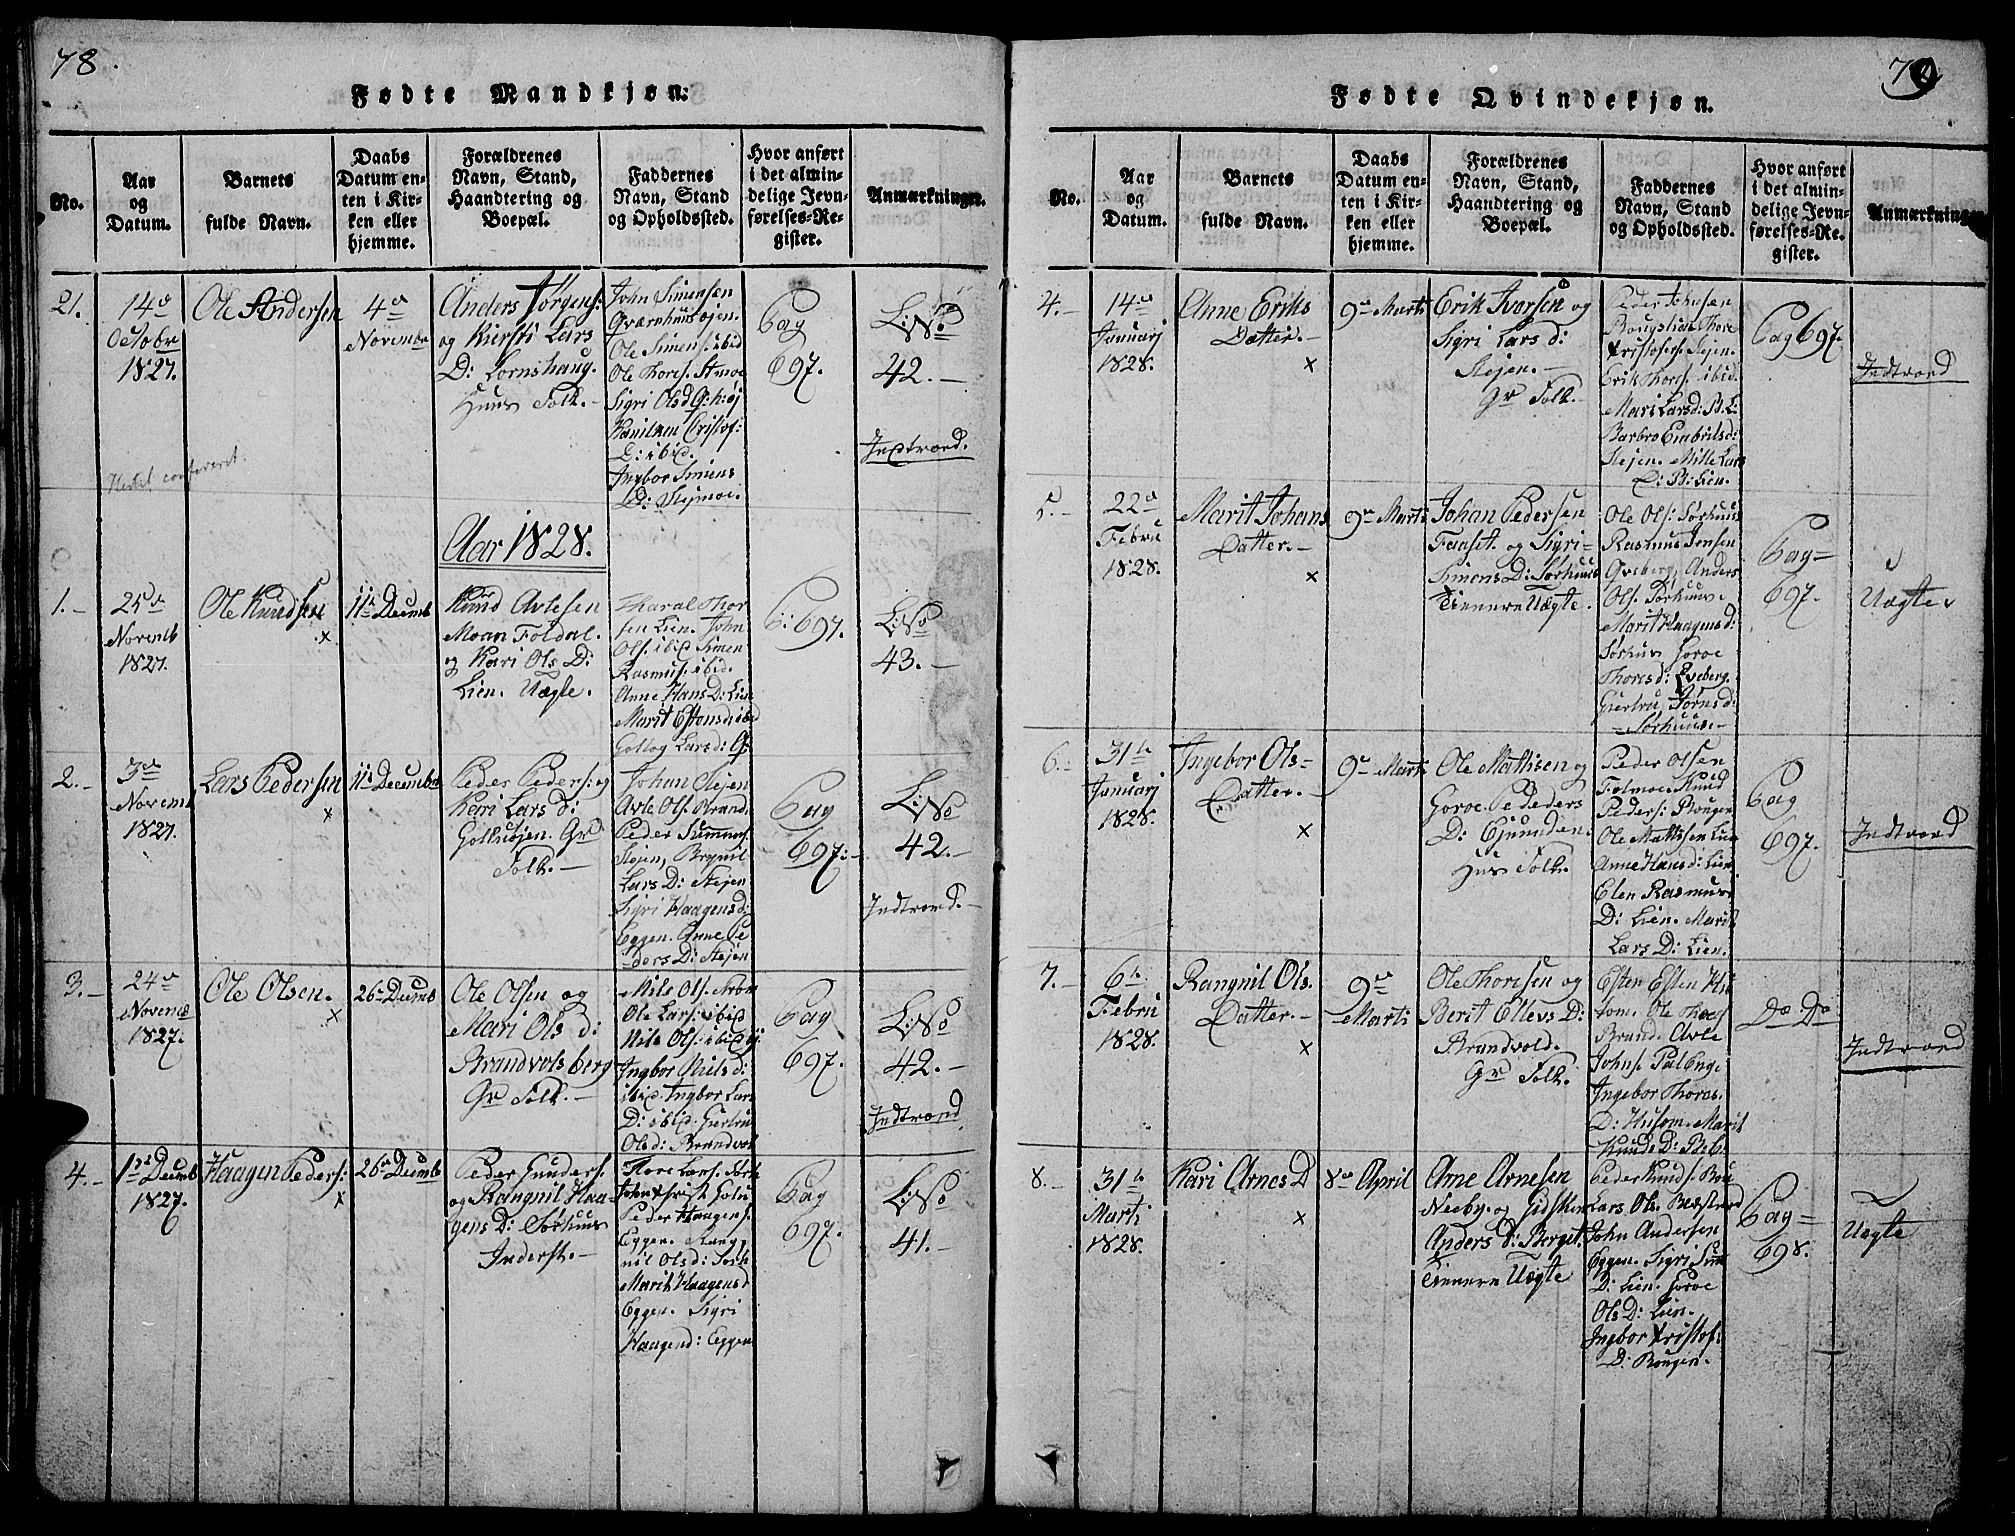 78.
Fødte Mandkjøn.
No.
Aar
og
Datum.
Barnets
fulde Navn.
Daabs
Datum en-
ten i Kir-
ken eller
hjemme.
Forældrenes
Navn, Stand,
Haandtering og
Boepæl.
Faddernes
Navn, Stand
og Opholdssted.
Hvor anført
i det almin-
delige Jevn-
førelses-Re-
gister.
Anmærkninger.
21.
14de
Octobr
1827.
Ole Andersen
4de
Novembr
Anders Jörgens:
og Kiersti Lars
D: Lornshaug.
Huus Folk.
John Simensen
Ole Simens: ibid
Ole Thores:
Sigri Olsd
D: ibid.
Ingbor Simens
D: Slejmoe.
Pag
697.
42.
Indtrord.
Aar 1828.
1.
25de
Novemb
1827.
Ole Knudsen
x
11te Decemb
Knud Avlesen
Moan Foldal.
og Kari Ols D:
Lien. Uægte.
Haral Thor
sen Lien. John
Ols: ibid Simen
Rasmus: ibid.
Anne Hans D: Lien
Marit Estensd: ibid
Lars d:
P: 697.
43.
2.
3de
Novemb
1827.
Lars Pedersen
x
11te Decembr
Peder Peders: og
Kari Lars d:
Gr
Folk.
Johan Slejen
Avle Ols: Brand
Peder
Slejen, Brynil
Lars D: Slejen
Sigri Haagens d:
Eggen. Anne Pe
ders D: Slejen
Pag
697.
42.
Indtrord.
3.
24de
Novemb
1827.
Ole Olsen.
x
26de Decemb
Ole Olsen og
Mari Ols d:
Brandvolsberg
Gr Folk.
Nils Ols:
Ole Lars: ibid
Nils Ols: ibid
Ingbor Niels d:
ibid. Ingbor Lars
D: ibid. Giertru
Ols d: Brandvol
Pag
697.
42.
Indtrord
4.
1ste Decemb
1827.
Haagen Peders:
x
26de Decemb
Peder Gunders:
og Rangnil Haa-
gens D: Sørhuus
Inderst.
Thore Lars:
Peder Haagens:
Eggen. Rang
nil Ols d:
Marit Haagens d
Eggen. Sigri
Haagend: Eggen
Pag
697.
41.
79
Fødte Qvindekjøn.
No.
Aar
og
Datum.
Barnets
fulde Navn.
Daabs
Datum en-
ten i Kir-
ken eller
hjemme.
Forældrenes
Navn, Stand,
Haandtering og
Boepæl.
Faddernes
Navn, Stand
og Opholdssted.
Hvor anført
i det almin-
delige Jevn-
førelses-Re-
gister.
Anmærkninger
4.
14de
Januarj
1828.
Anne Eriks
Datter.
x
9de Marti
Erik Ivorsen og
Sigri Lars d:
Slejen.
Gr Folk.
Peder Johnsen
Thore
Kristofers: Slejen.
Erik Thores: ibid.
Mari Lars d: B. L:
Barbro Embrits d:
Slejen. Mille Lars
D: B: Lien.
Pag 697.
Indtrord
5.
22de
Febru
1828.
Marit Johans
Datter.
x
9de Marti
Johan Pedersen
Faaset. og Sigri
Simens D: Sørhuus
Tiennere Uægte.
Ole Ols: Sørhuus
Rasmus Jensen
Qveberg, Anders
Ols: Sørhuus
Marit Haagens d:
Sørhus Goroe
Thores d: Qveberg.
Giertru Jörns d:
Sørhuus
Pag
697.
Uægte
6.
31te
Januarj
1828.
Ingebor Ols-
Datter.
x
9de Marti
Ole Mathisen og
Goroe Peders
D:
Hus Folk.
Peder Olsen
Folmoe. Knud
Peders: Rougen
Ole Mathisen Lien
Anne Hans d: Lien
Elen Rasmus
D: Lien. Marit
Lars D: Lien.
Pag
697.
Indtrord
7.
6te
Febru
1828.
Rangnil Ols.
Datter.
x
9de
Marti
Ole Thoresen og
Berit Ellevs D:
Brandvold.
Gr Folk.
Esten Esten Hu
som. Ole Thoes
Brand. Avle
Johns: Palenge
Ingebor Thoras.
D: Husom. Marit
Knuds D:
Do Do
Indtrord
8.
31te
Marti
1828.
Kari Arnes D
x
8de April
Arne Arnesen
Neeby. og Gidsken
Anders D: Berget.
Tiennere Uægte
Peder Knuds:
Lars Ols:
John Andersen
Eggen. Sigri
D: Lien. Goroe
Ols D: Lien.
Ingebor Kristof:
D: Rougen.
Pag
698.
Uægte